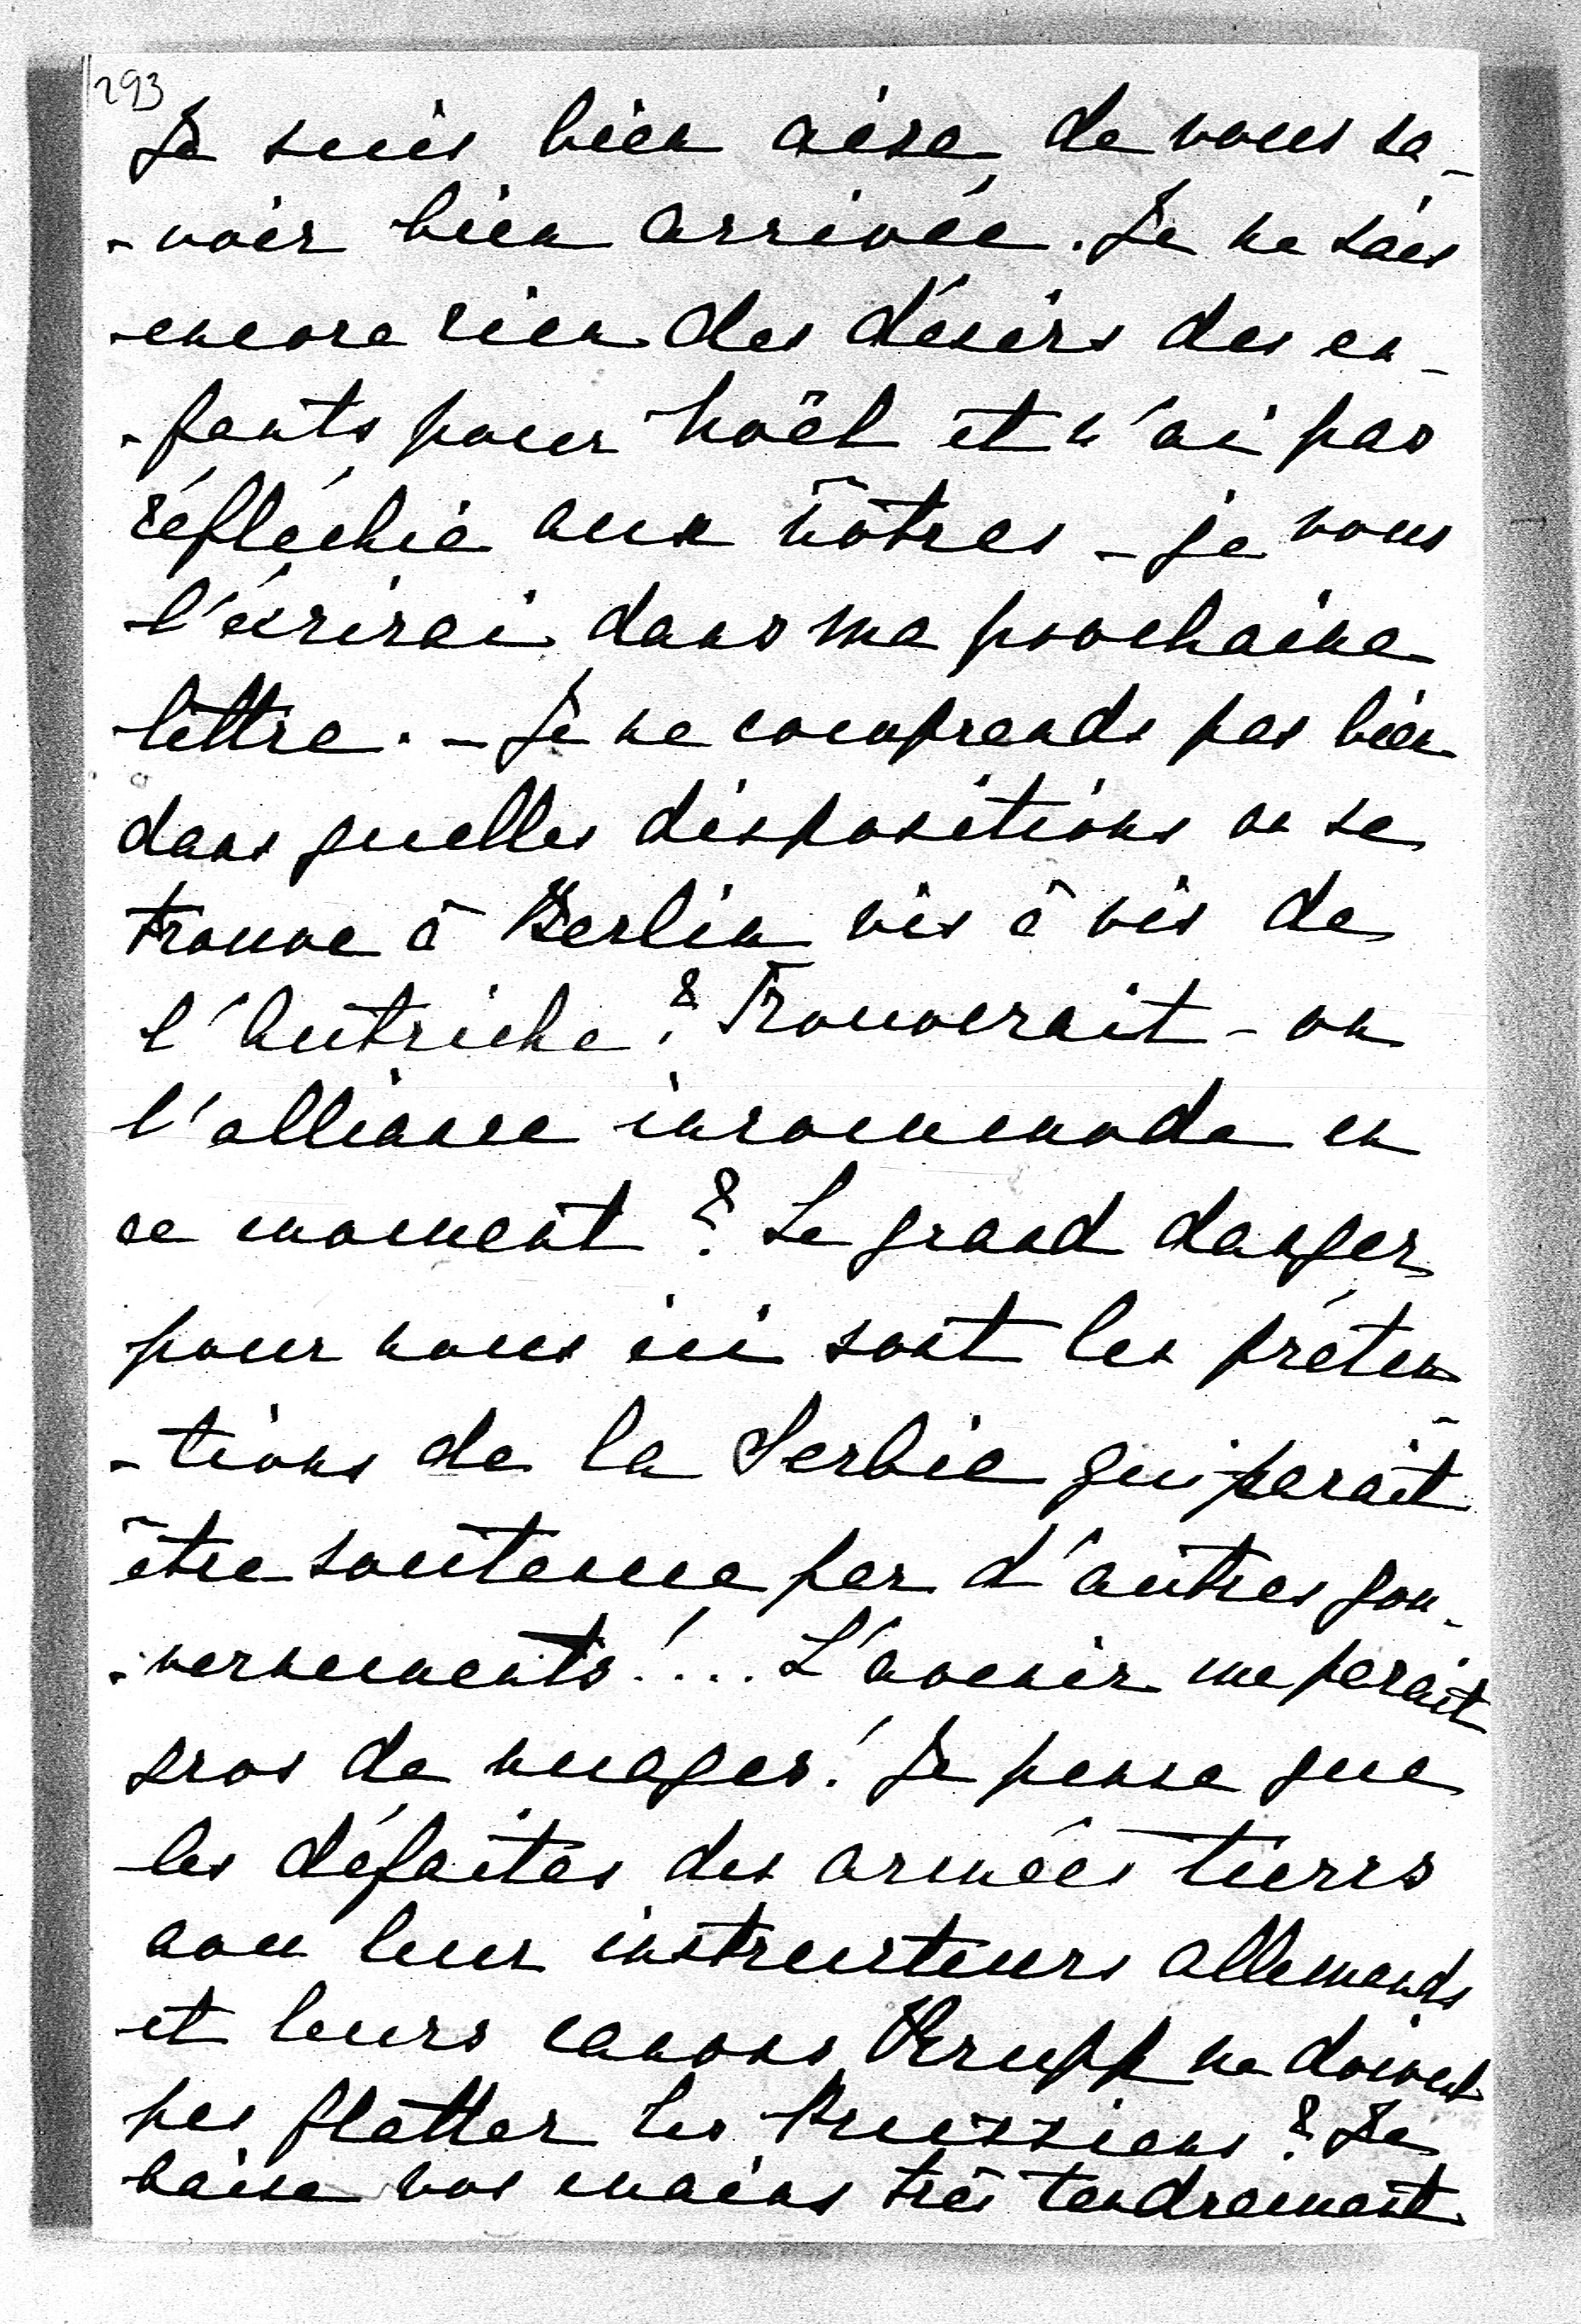 293
Je suis bien aise de vous sa-
-voir bien arrivée. Je ne sais
encore rien des désirs des en-
-fants pour Noël et n'ai pas
réfléchie aux nôtres - je vous
l'écrirai dans ma prochaine
lettre. - Je ne comprends pas bien
dans quelles dispositions on se
trouve à Berlin vis à vis de
l'Autriche? Trouverait-on
l'alliance incommode en
ce moment? Le grand danger
pour nous ici sont les préten-
-tions de la Serbie qui parait
être soutenue par d'autres gou-
-vernements!... L'avenir me parait
gros de nuages! Je pense que
les défaites des armées tierrs
avec leur instructeurs allemands
et leurs canons Krupp ne doivent
pas flatter les Prussiens? Je
baise vos mains très tendrement.